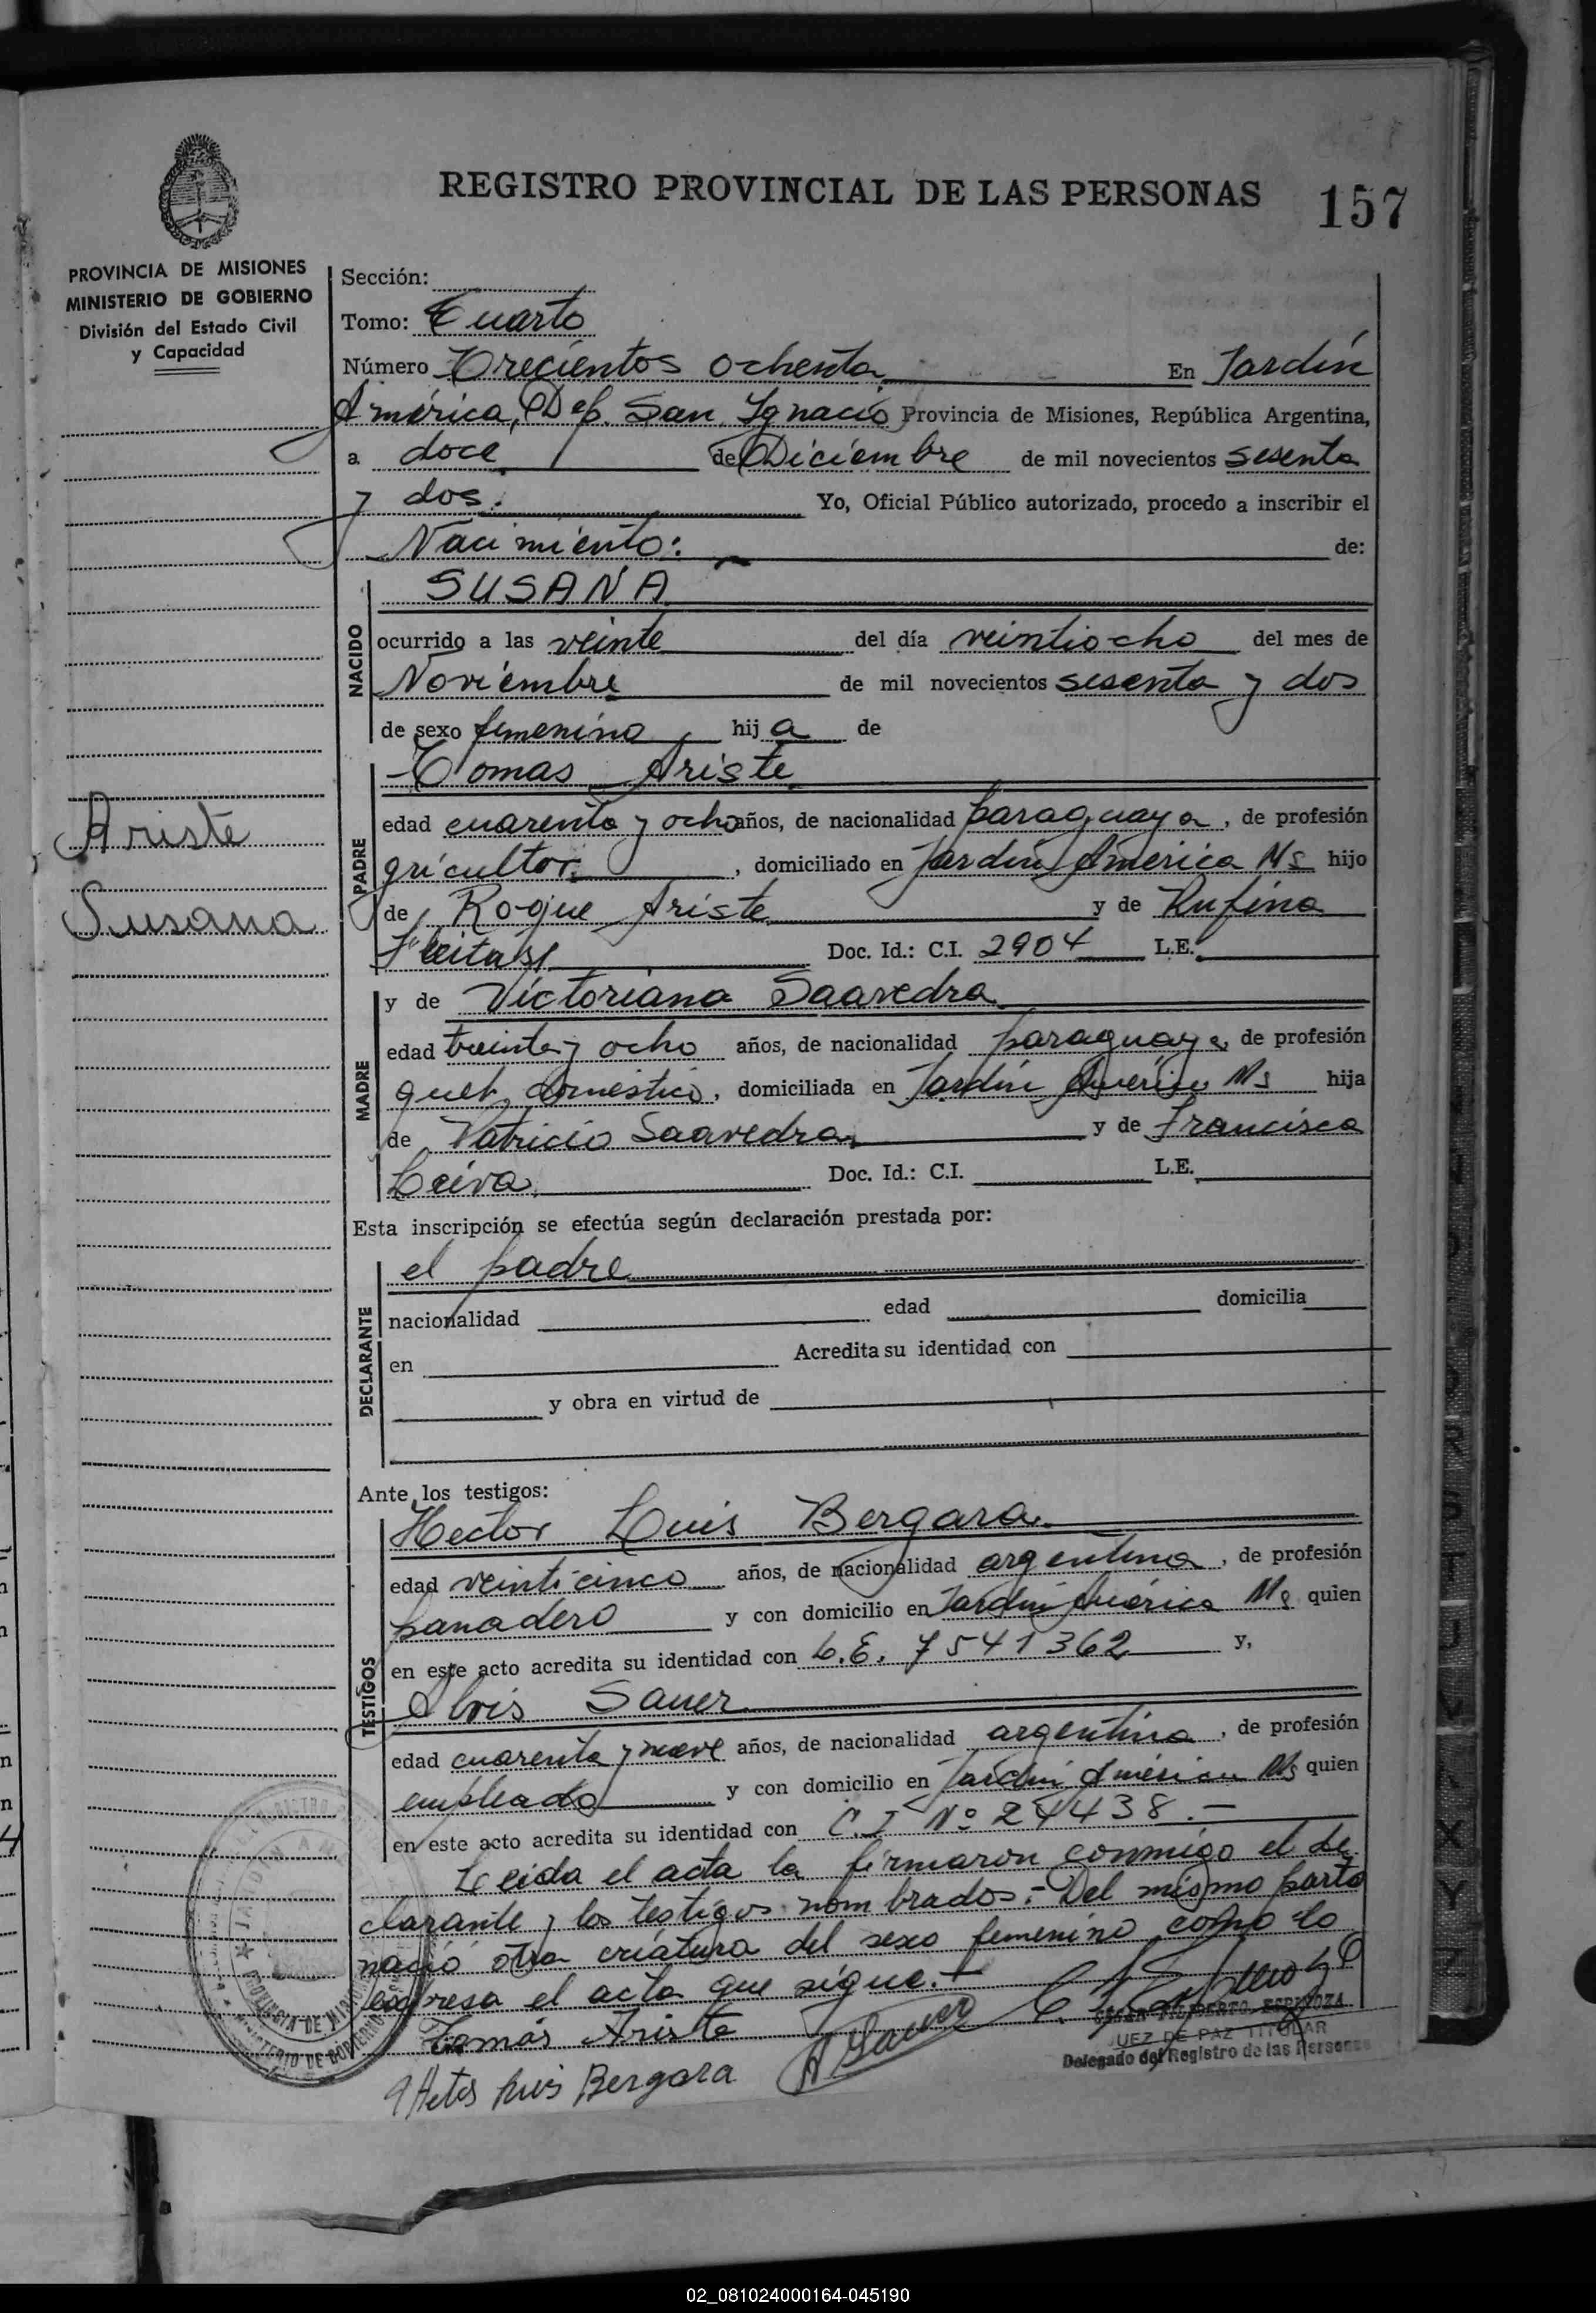 REGISTRO PROVINCIAL DE LAS PERSONAS 157
PROVINCIA DE MISIONES
MINISTERIO DE GOBIERNO
División del Estado Civil
y Capacidad
Ariste
Susana
Sección:
Tomo: Cuarto
Número Trecientos ochenta En Jardín
América, Dep. San Ignacio Provincia de Misiones, República Argentina,
a doce de Diciembre de mil novecientos sesenta
y dos. Yo, Oficial Público autorizado, procedo a inscribir el
Nacimiento: de:
NACIDO
SUSANA
ocurrido a las veinte del día veintiocho del mes de
Noviembre de mil novecientos sesenta y dos
de sexo femenino hija de
PADRE
Tomas Ariste
edad cuarenta y ocho años, de nacionalidad paraguaya, de profesión
gricultor. , domiciliado en Jardín América Ms hijo
de Roque Ariste y de Rufina
Fleitas Doc. Id.: C.I. 2904 L.E.
MADRE
y de Victoriana Saavedra
edad treinta y ocho años, de nacionalidad paraguaya, de profesión
queh. doméstico, domiciliada en Jardín América Ms hija
de Patricio Saavedra y de Francisca
Leiva Doc. Id.: C.I. L.E.
Esta inscripción se efectúa según declaración prestada por:
DECLARANTE
el padre
nacionalidad edad domicilia
en Acredita su identidad con
y obra en virtud de
Ante los testigos:
TESTIGOS
Hector Luis Bergara
edad veinticinco años, de nacionalidad argentina, de profesión
panadero y con domicilio en Jardín América Ms quien
en este acto acredita su identidad con L.E. 7541362 y,
Alvis Sauer
edad cuarenta y nueve años, de nacionalidad argentina, de profesión
empleado y con domicilio en Jardín América Ms quien
en este acto acredita su identidad con C.I Nº 24438.-
Leida el acta la firmaron conmigo el de-
clarante y los testigos nombrados.- Del mismo parto
nació otra criatura del sexo femenino como lo
expresa el acta que sigue.-
Tomás Ariste
A Sauer
Hetor Luis Bergara
ESPINOZA
JUEZ DE PAZ TITULAR
Delegado del Registro de las Personas
02_081024000164-045190